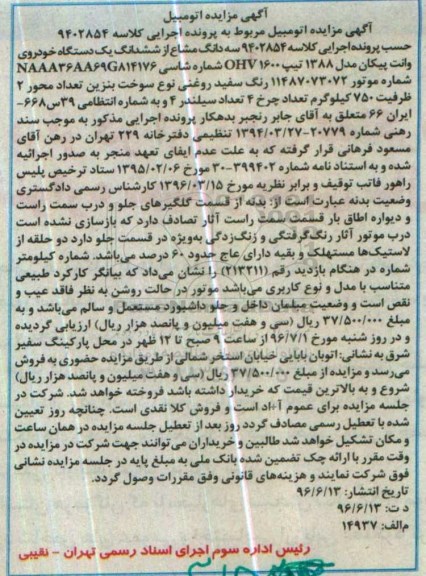 آگهی مزایده اتومبیل
آگهی مزایده اتومبیل مربوط به پرونده اجرایی کلاسه ۹۴۰۲۸۵۴
حسب پرونده اجرایی کلاسه ۹۴۰۲۸۵۴ سه دانگ مشاع از ششدانگ یک دستگاه خودروی
وانت پیکان مدل ۱۳۸۸ تیپ OHV ۱۶۰۰ شماره شاسی NAAA۳۶AA۶۹G۸۱۴۱۷۶
شماره موتور ۱۱۴۸۷۰۷۳۰۷۲ رنگ سفید روغنی نوع سوخت بنزین تعداد محور ۲
ظرفیت ۷۵۰ کیلوگرم تعداد چرخ ۴ تعداد سیلندر ۴ و به شماره انتظامی ۳۹س۶۶۸-
ایران ۶۶ متعلق به آقای جابر رنجبر بدهکار پرونده اجرایی مذکور به موجب سند
رهنی شماره ۲۰۷۷۹-۱۳۹۴/۰۳/۲۷ تنظیمی دفترخانه ۲۲۹ تهران در رهن آقای
مسعود فرهانی قرار گرفته که به علت عدم ایفای تعهد منجر به صدور اجرائیه
شده و به استناد نامه شماره ۳۹۹۴۰۲-۳۰ مورخ ۱۳۹۵/۰۲/۰۶ ستاد ترخیص پلیس
راهور فاتب توقیف و برابر نظریه مورخ ۱۳۹۶/۰۳/۱۵ کارشناس رسمی دادگستری
وضعیت بدنه عبارت است از: بدنه از قسمت گلگیرهای جلو و درب سمت راست
و دیواره اطاق بار قسمت سمت راست آثار تصادف دارد که بازسازی نشده است
درب موتور آثار رنگ‌گرفتگی و زنگ‌زدگی به‌ویژه در قسمت جلو دارد دو حلقه از
لاستیک‌ها مستهلک و بقیه دارای عاج حدود ۶۰ درصد می‌باشد. شماره کیلومتر
شماره در هنگام بازدید رقم (۲۱۳۲۱۱) را نشان می‌داد که بیانگر کارکرد طبیعی
متناسب با مدل و نوع کاربری می‌باشد موتور در حالت روشن به نظر فاقد عیب و
نقص است و وضعیت مبلمان داخل و جلو داشبورد مستعمل و سالم می‌باشد و به
مبلغ ۳۷/۵۰۰/۰۰۰ ریال (سی و هفت میلیون و پانصد هزار ریال) ارزیابی گردیده
و در روز شنبه مورخ ۹۶/۷/۱ از ساعت ۹ صبح تا ۱۲ ظهر در محل پارکینگ سفیر
شرق به نشانی: اتوبان بابایی خیابان استخر شمالی از طریق مزایده حضوری به فروش
می‌رسد و مزایده از مبلغ ۳۷/۵۰۰/۰۰۰ ریال (سی و هفت میلیون و پانصد هزار ریال)
شروع و به بالاترین قیمت که خریدار داشته باشد فروخته خواهد شد. شرکت در
جلسه مزایده برای عموم آزاد است و فروش کلا نقدی است. چنانچه روز تعیین
شده با تعطیل رسمی مصادف گردد روز بعد از تعطیل جلسه مزایده در همان ساعت
و مکان تشکیل خواهد شد طالبین و خریداران می‌توانند جهت شرکت در مزایده در
وقت مقرر با ارائه چک تضمین شده بانک ملی به مبلغ پایه در جلسه مزایده نشانی
فوق شرکت نمایند و هزینه‌های قانونی وفق مقررات وصول گردد.
تاریخ انتشار: ۹۶/۶/۱۳
د ت: ۹۶/۶/۱۳
م‌الف: ۱۴۹۳۷
رئیس اداره سوم اجرای اسناد رسمی تهران - نقیبی